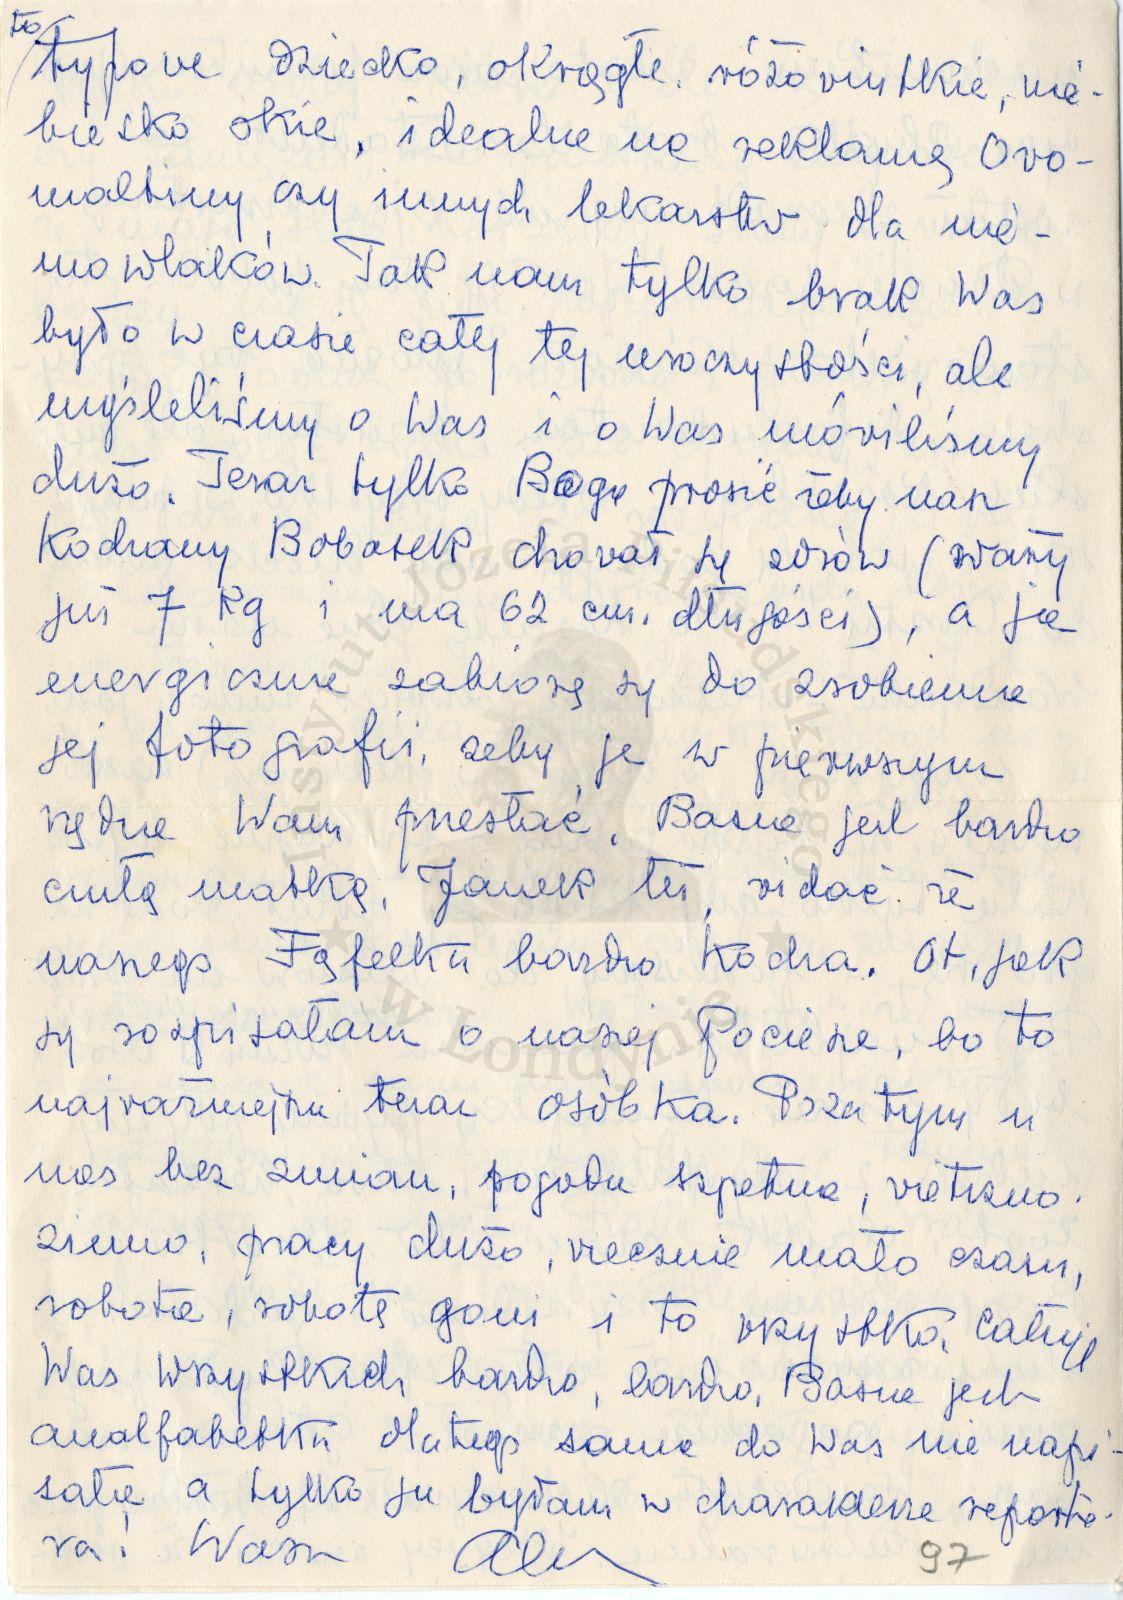 to
typowe dziecko, okrągłe, różowiutkie, nie-
biesko okie, idealne na reklamę Ovo-
maltiny czy innych lekarstw dla nie-
mowlaków. Tak nam tylko brak Was
było w czasie całej tej uroczystości, ale
myśleliśmy o Was i o Was mówiliśmy
dużo. Teraz tylko Boga prosić żeby nasz
Kochany Bobasek chował się zdrów (waży
już 7 kg i ma 62 cm. długości), a ja
energicznie zabiorę się do zrobienia
jej fotografii, żeby je w pierwszym
rzędzie Wam przesłać. Basia jest bardzo
czułą matką, Janek też, widać że
naszego Fąfelka bardzo kocha. Ot, jak
się rozpisałam o naszej Pociesze, bo to
najważniejsza teraz osóbka. Poza tym u
nas bez zmian, pogoda szpetna, wietrzno
zimno, pracy dużo, wiecznie mało czasu,
robota, robotę goni i to wszystko. Całuję
Was wszystkich bardzo, bardzo. Basia jest
analfabetką dlatego sama do Was nie napi-
sała a tylko ja byłam w charakterze reporte-
ra! Wasza
97
Instytut Józefa Piłsudskiego
w Londynie